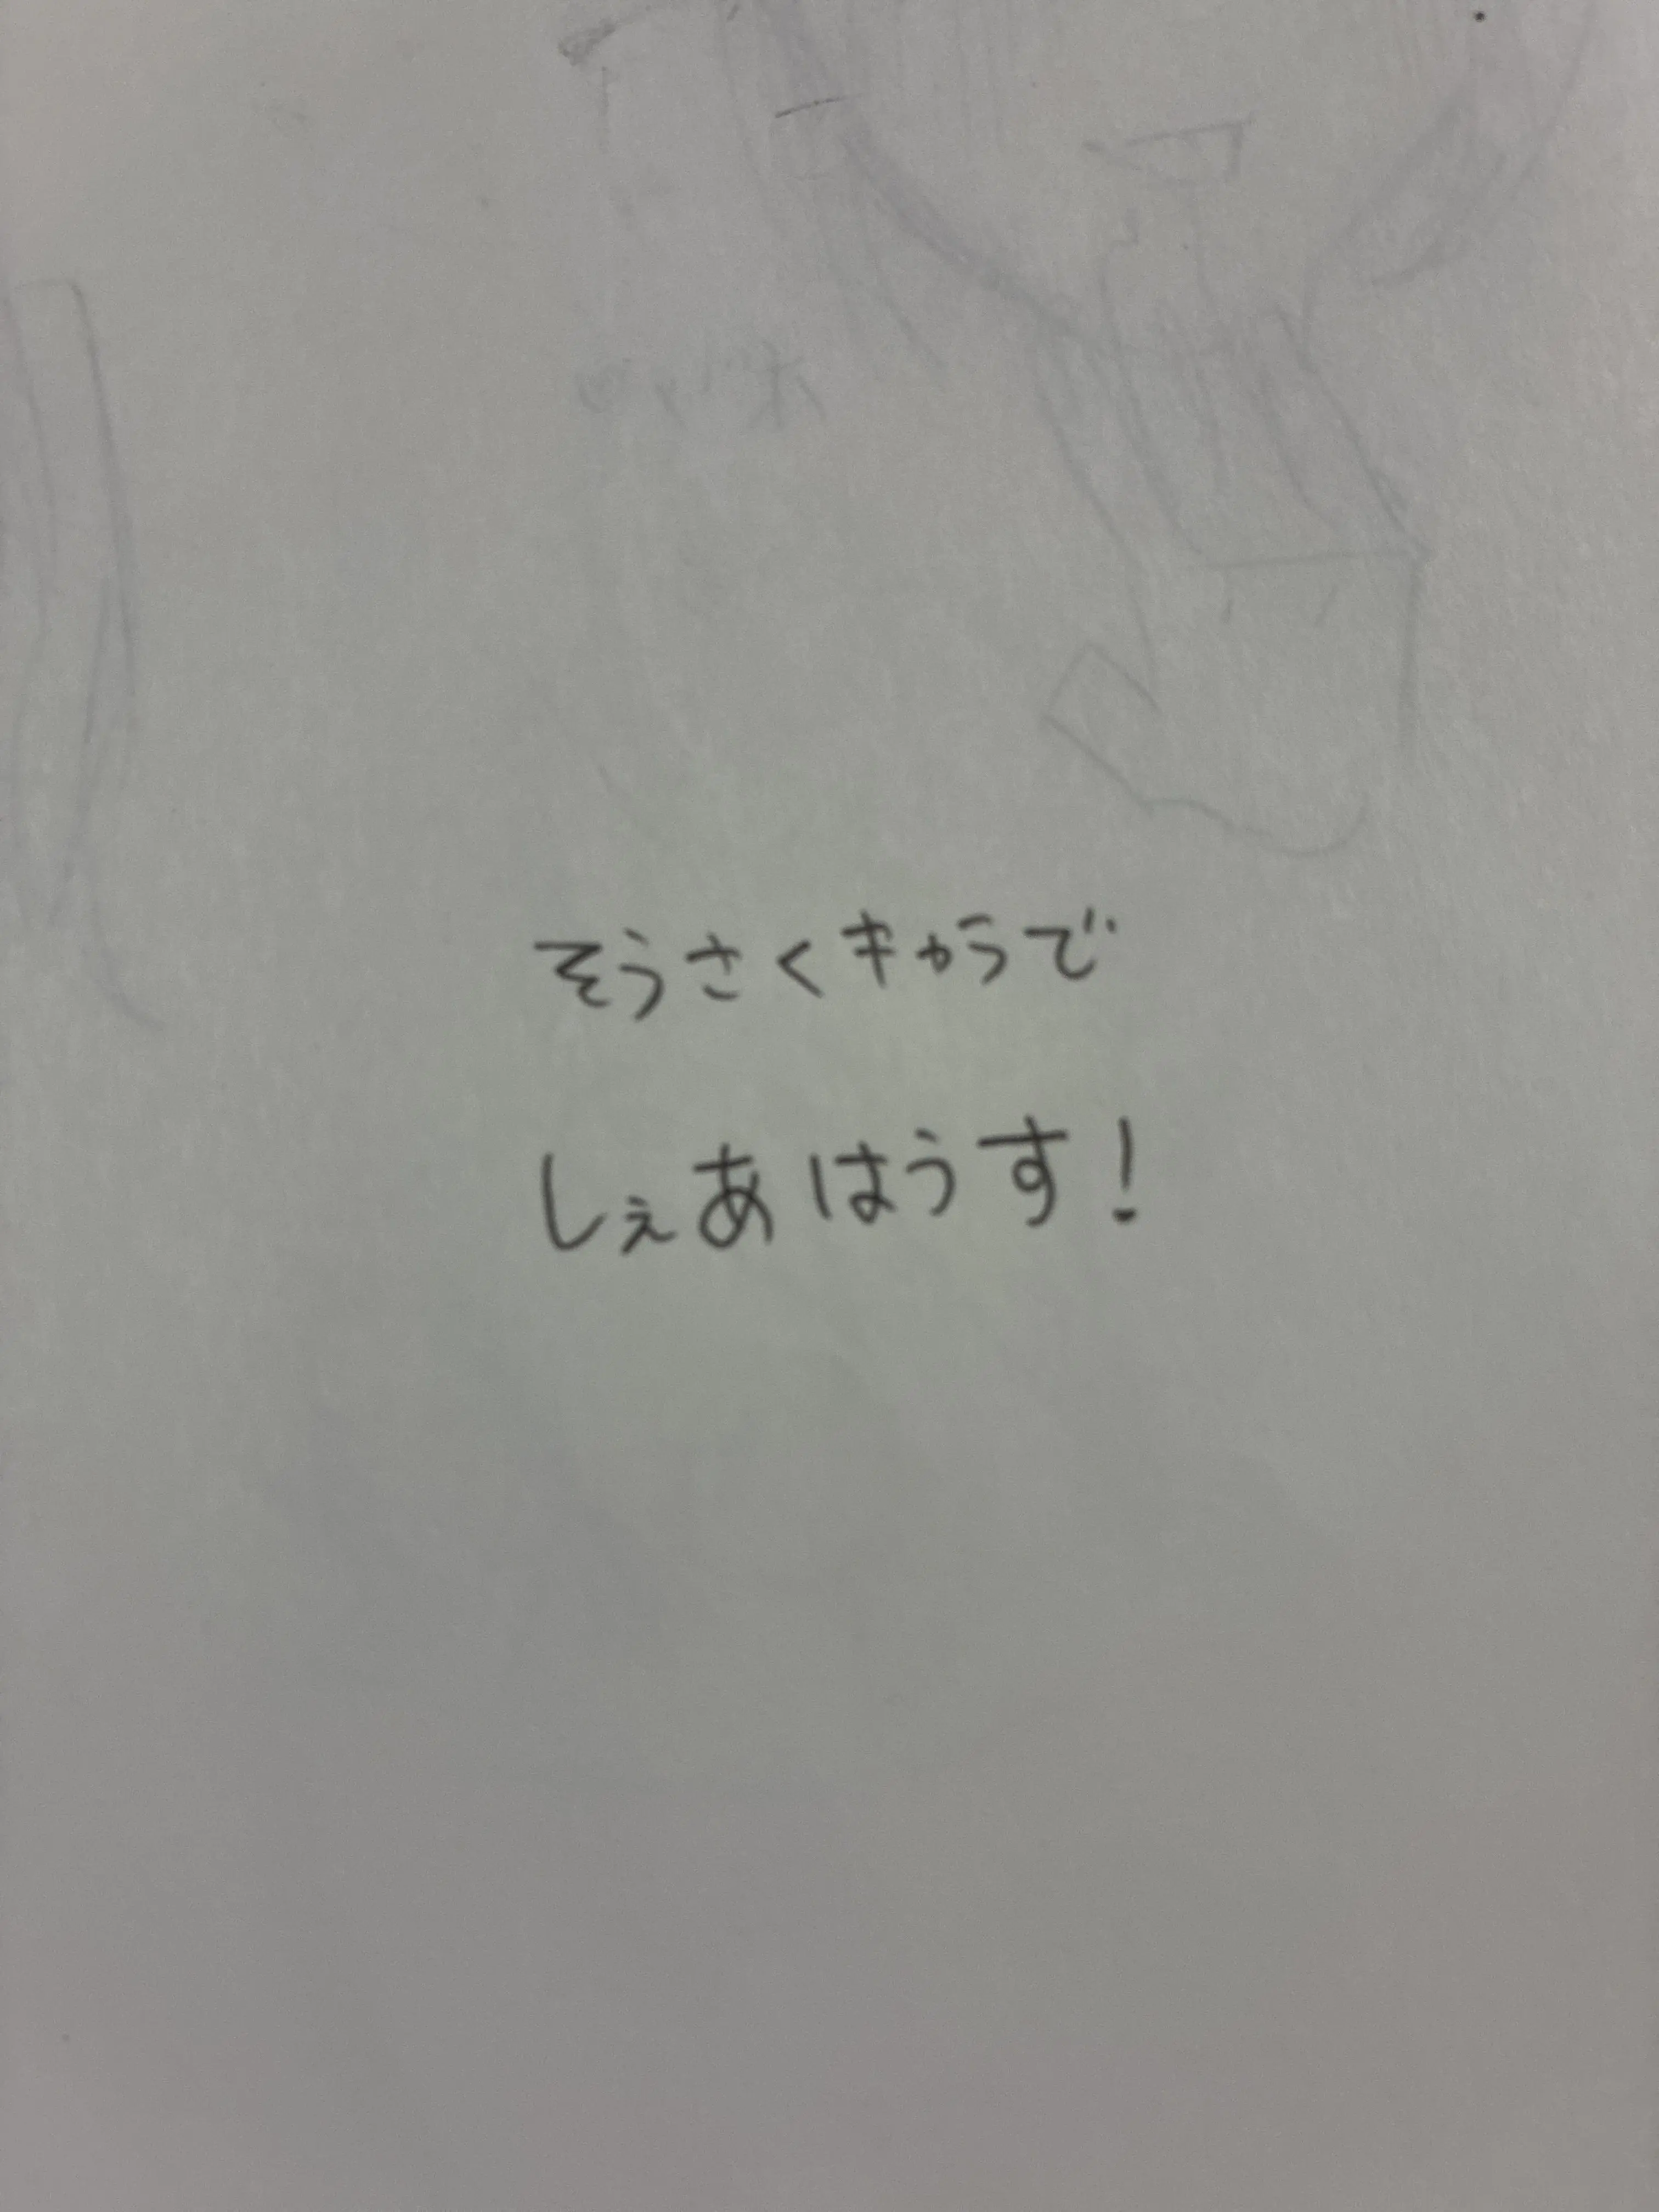 そうさくキャラで
しぇあはうす!